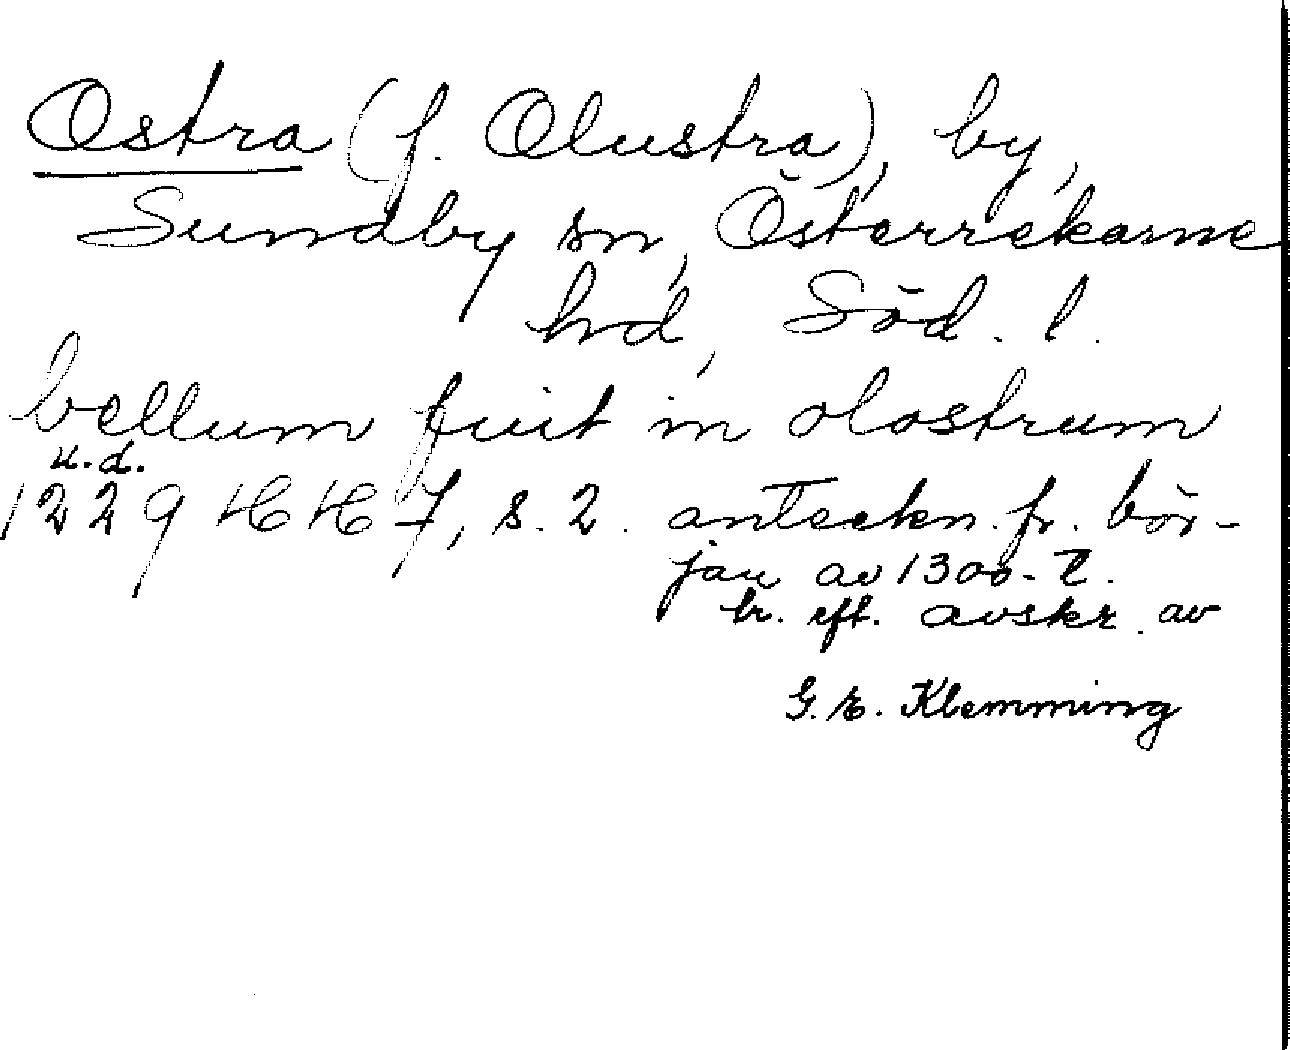 Ostra (f. Olustra), by,
Sundby sn, Österrekarne
hd, Söd. l.
bellum fuit in olostrum
u.d.
1229 HH 7, s. 2. anteckn. fr. bör-
jan av 1300-t.
tr. eft. avskr. av
G. E. Klemming